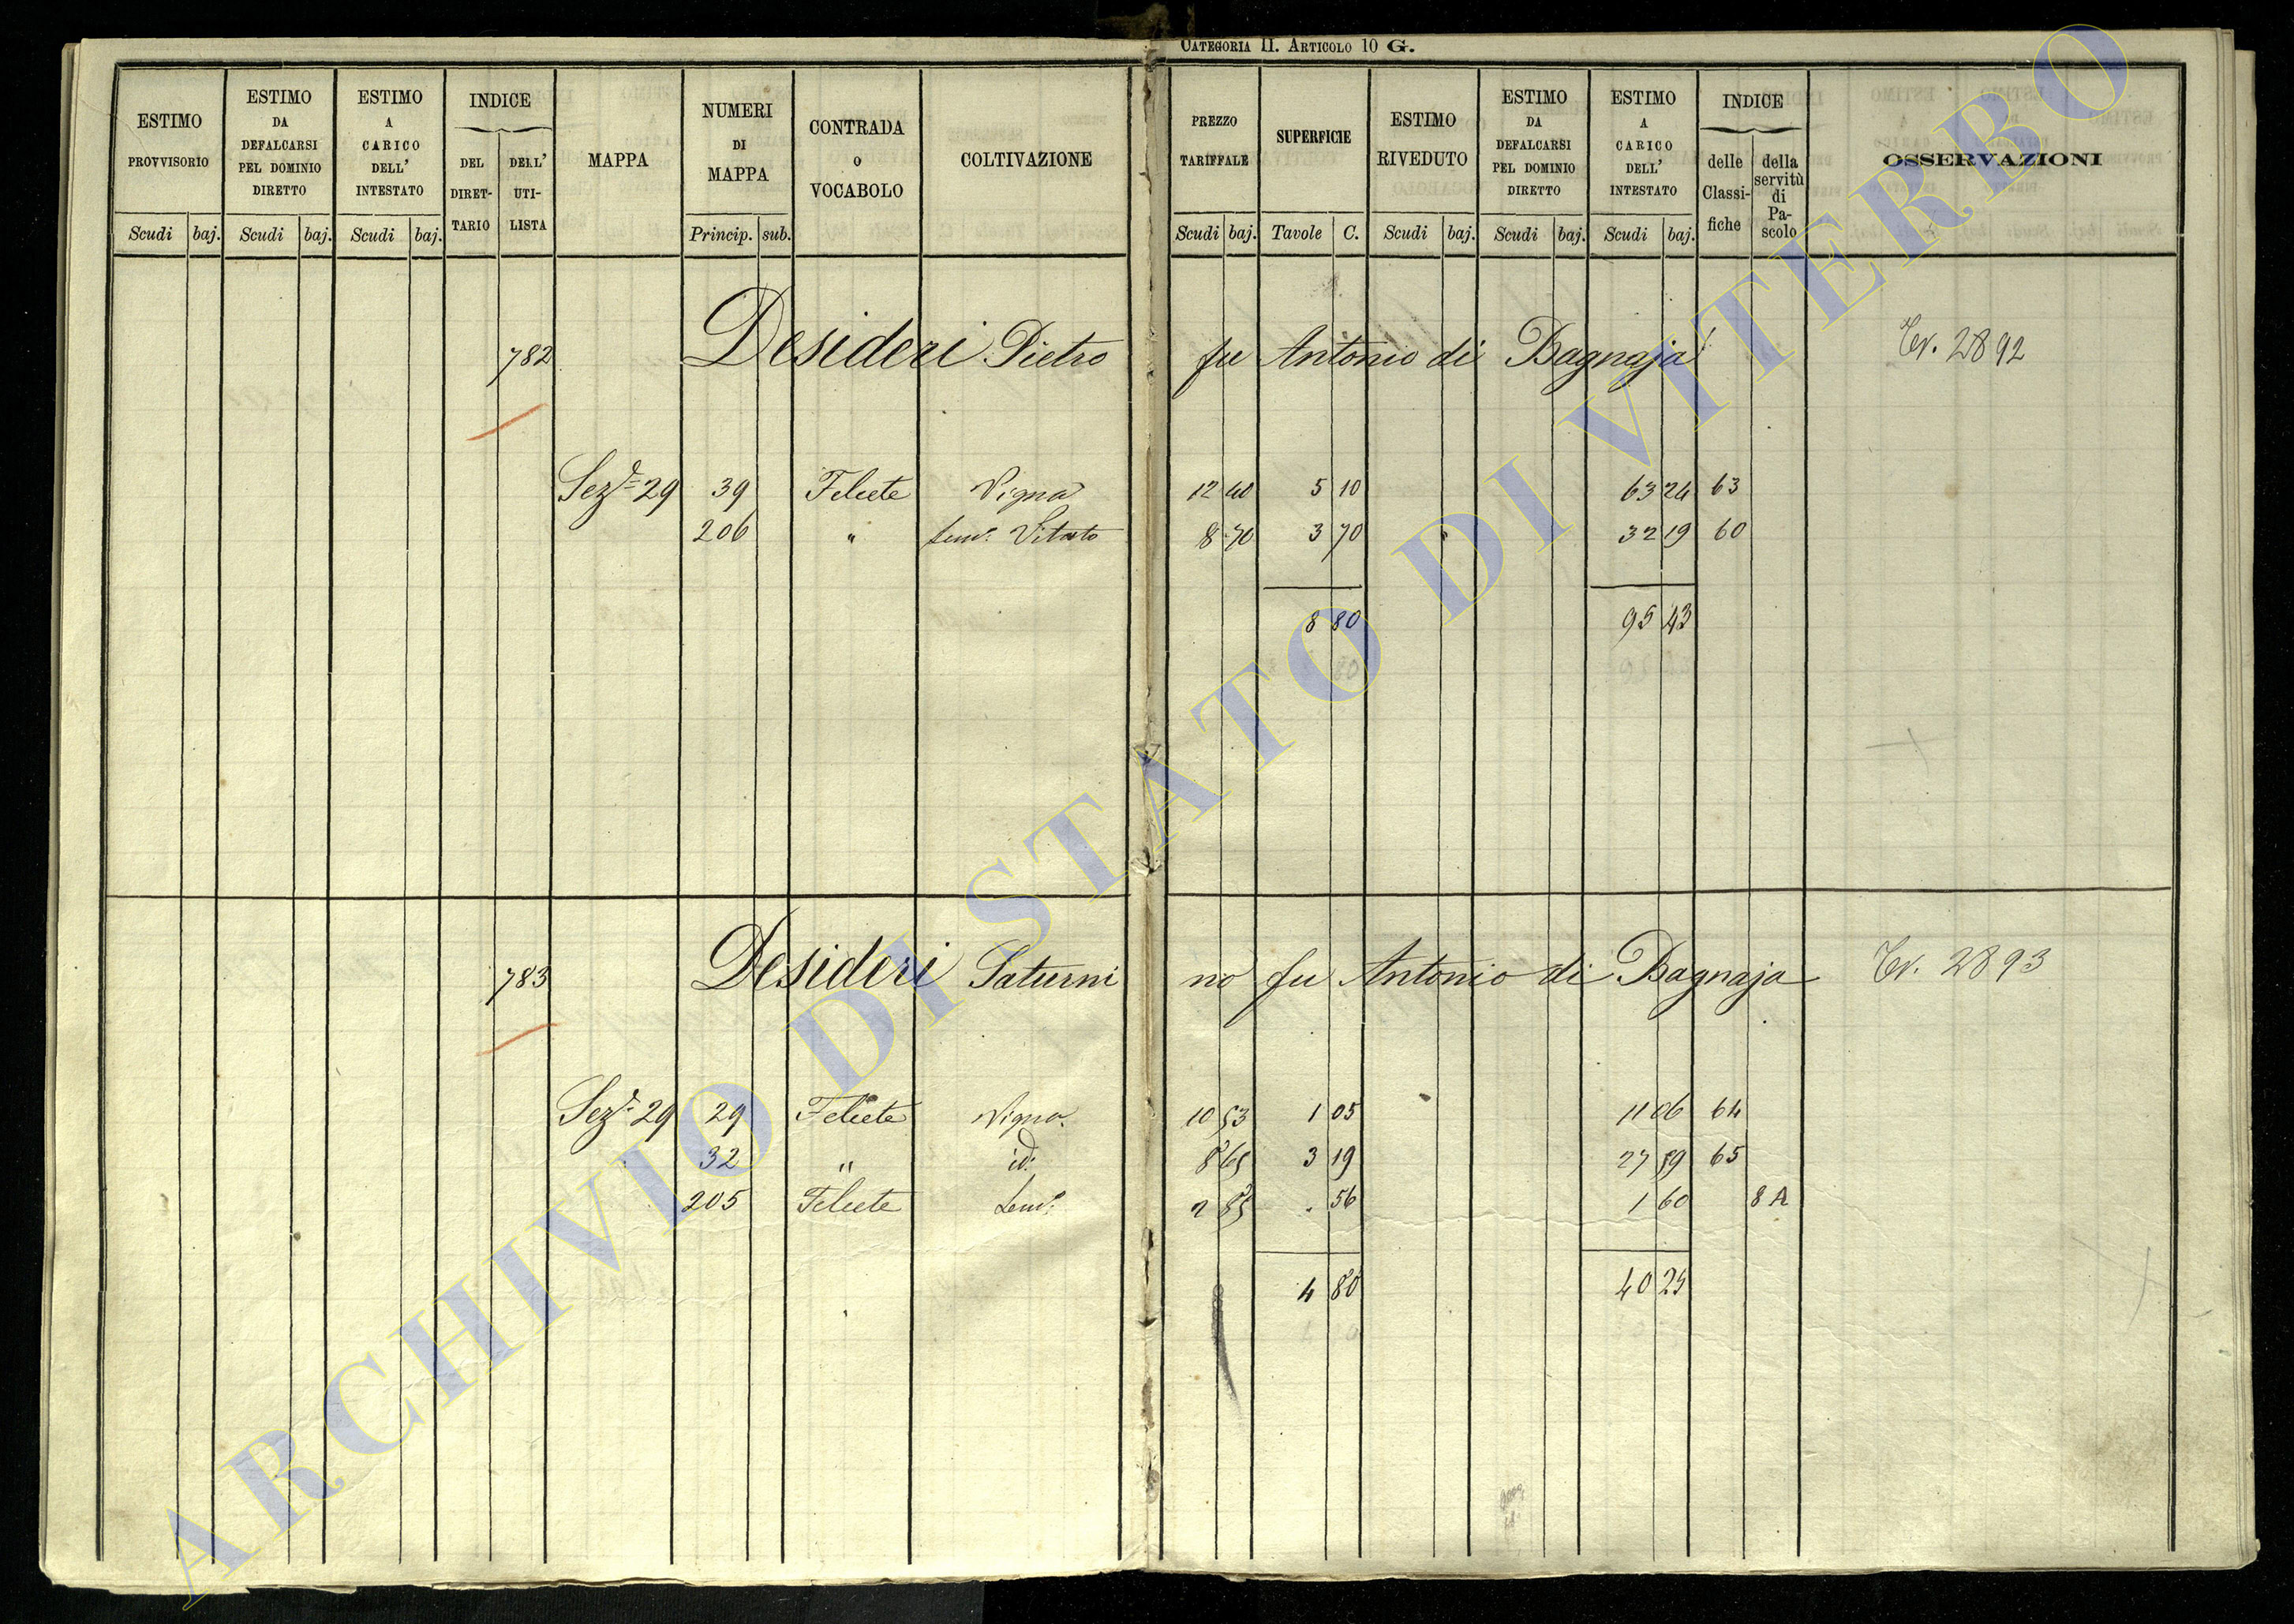 CATEGORIA II. ARTICOLO 10 G.
ESTIMO PROVVISORIO
Scudi baj.
ESTIMO DA DEFALCARSI PEL DOMINIO DIRETTO
Scudi baj.
ESTIMO A CARICO DELL' INTESTATO
Scudi baj.
INDICE
DEL DIRET-TARIO
DELL' UTI-LISTA
MAPPA
NUMERI DI MAPPA
Princip. sub.
CONTRADA O VOCABOLO
COLTIVAZIONE
PREZZO TARIFFALE
Scudi baj.
SUPERFICIE
Tavole C.
ESTIMO RIVEDUTO
Scudi baj.
ESTIMO DA DEFALCARSI PEL DOMINIO DIRETTO
Scudi baj.
ESTIMO A CARICO DELL' INTESTATO
Scudi baj.
INDICE
delle Classi-fiche
della servitù di Pa-scolo
OSSERVAZIONI
782 Desideri Pietro fu Antonio di Bagnaja 2892
Sez.e 29 39 Felcete Vigna 12 40 5 10 63 24 63
206 " Sem.o Vitato 8 70 3 70 32 19 60
8 80 95 43
783 Desideri Saturni no fu Antonio di Bagnaja 2893
Sez.e 29 29 Felcete Vigna 10 53 1 05 11 06 64
32 " id: 8 65 3 19 27 59 65
205 Felcete Sem.o 2 85 . 56 1 60 8 A
4 80 40 25
ARCHIVIO DI STATO DI VITERBO